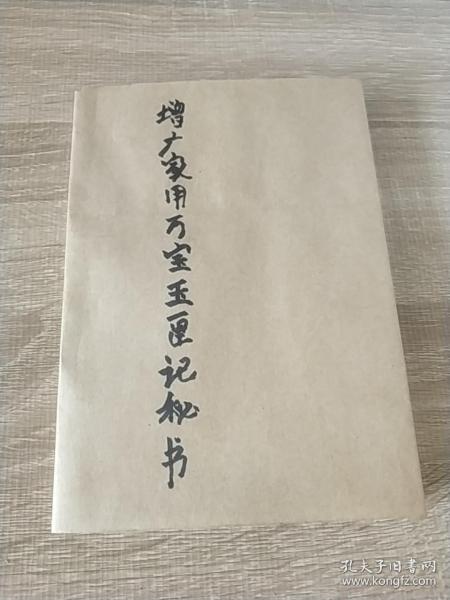 增广家用万宝玉匣记秘书
孔夫子旧书网
www.kongfz.com